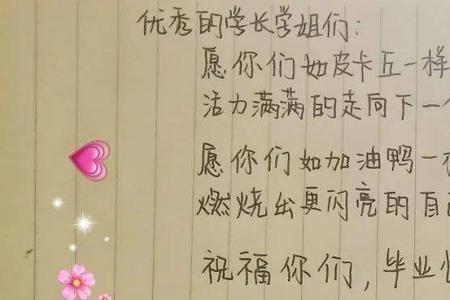 优秀的学长学姐们:
愿你们如皮卡丘一样
活力满满的走向下一
愿你们如加油鸭一
燃烧出更闪亮的自
祝福你们,毕业